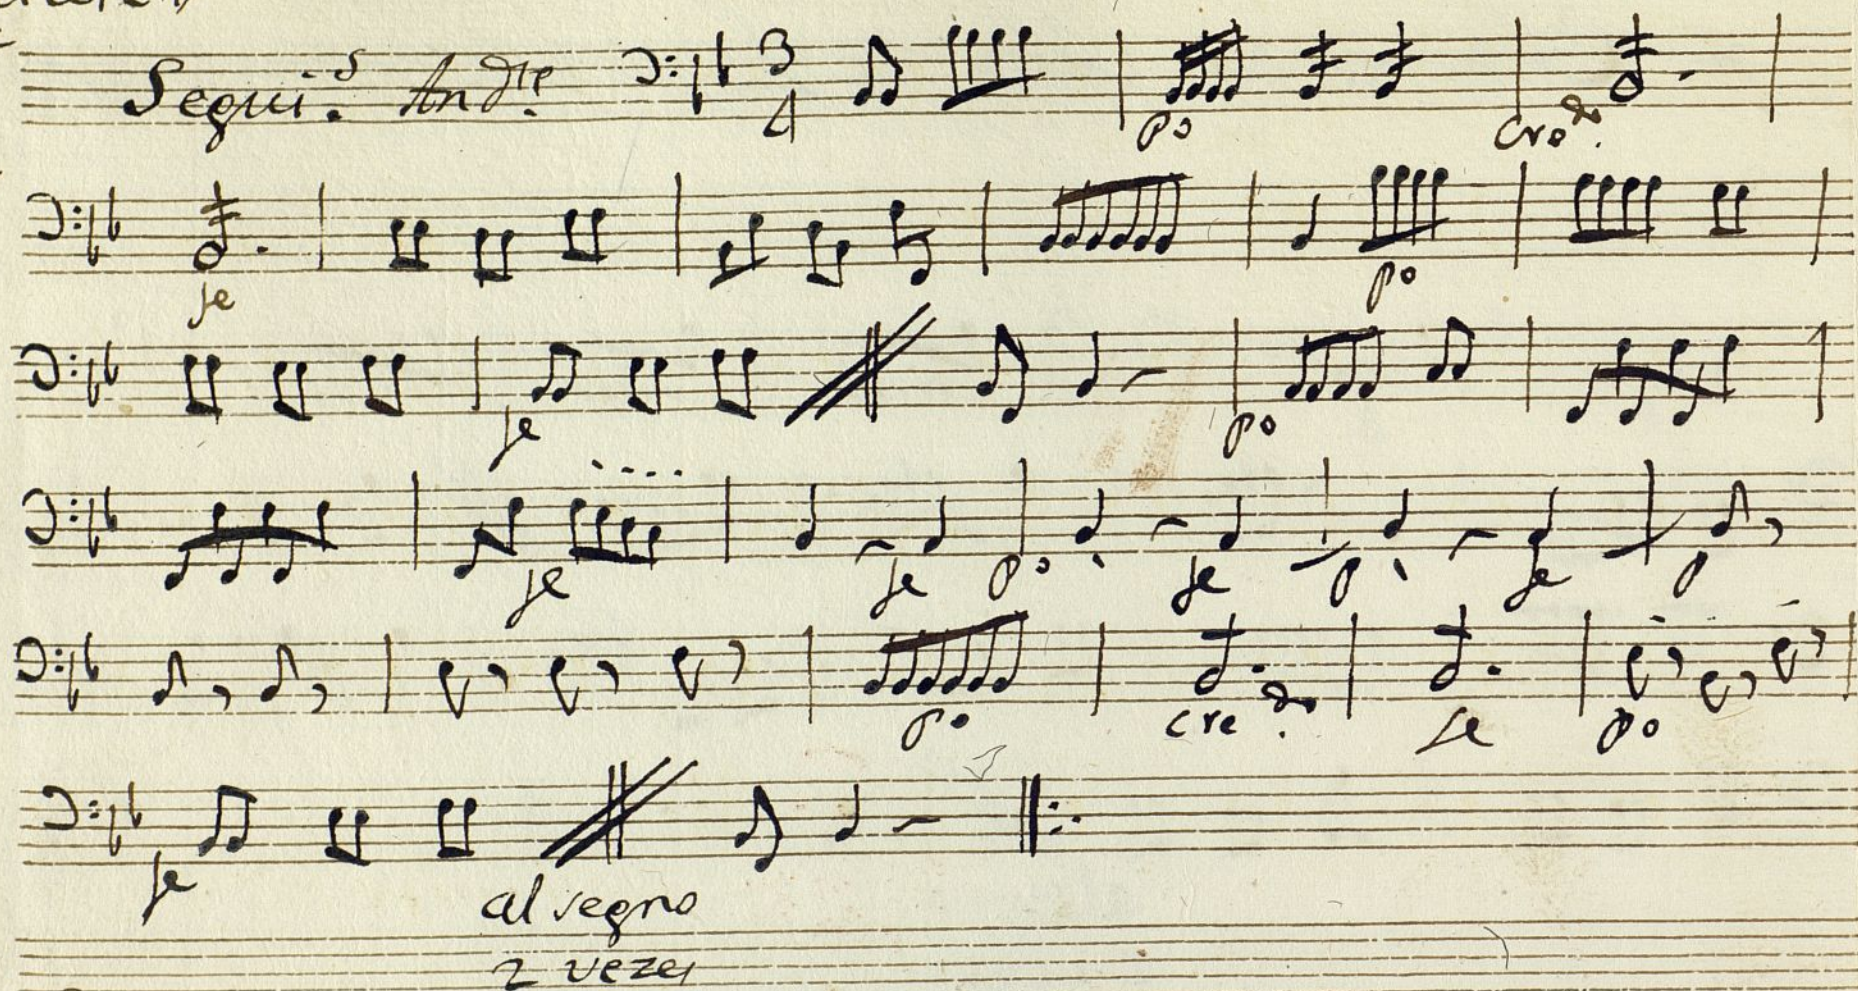 Segui.s Andte 3 4
po cro
fe po
fe po
fe fe po fe p fe p
po cre fe po
fe
al segno
2 vezes